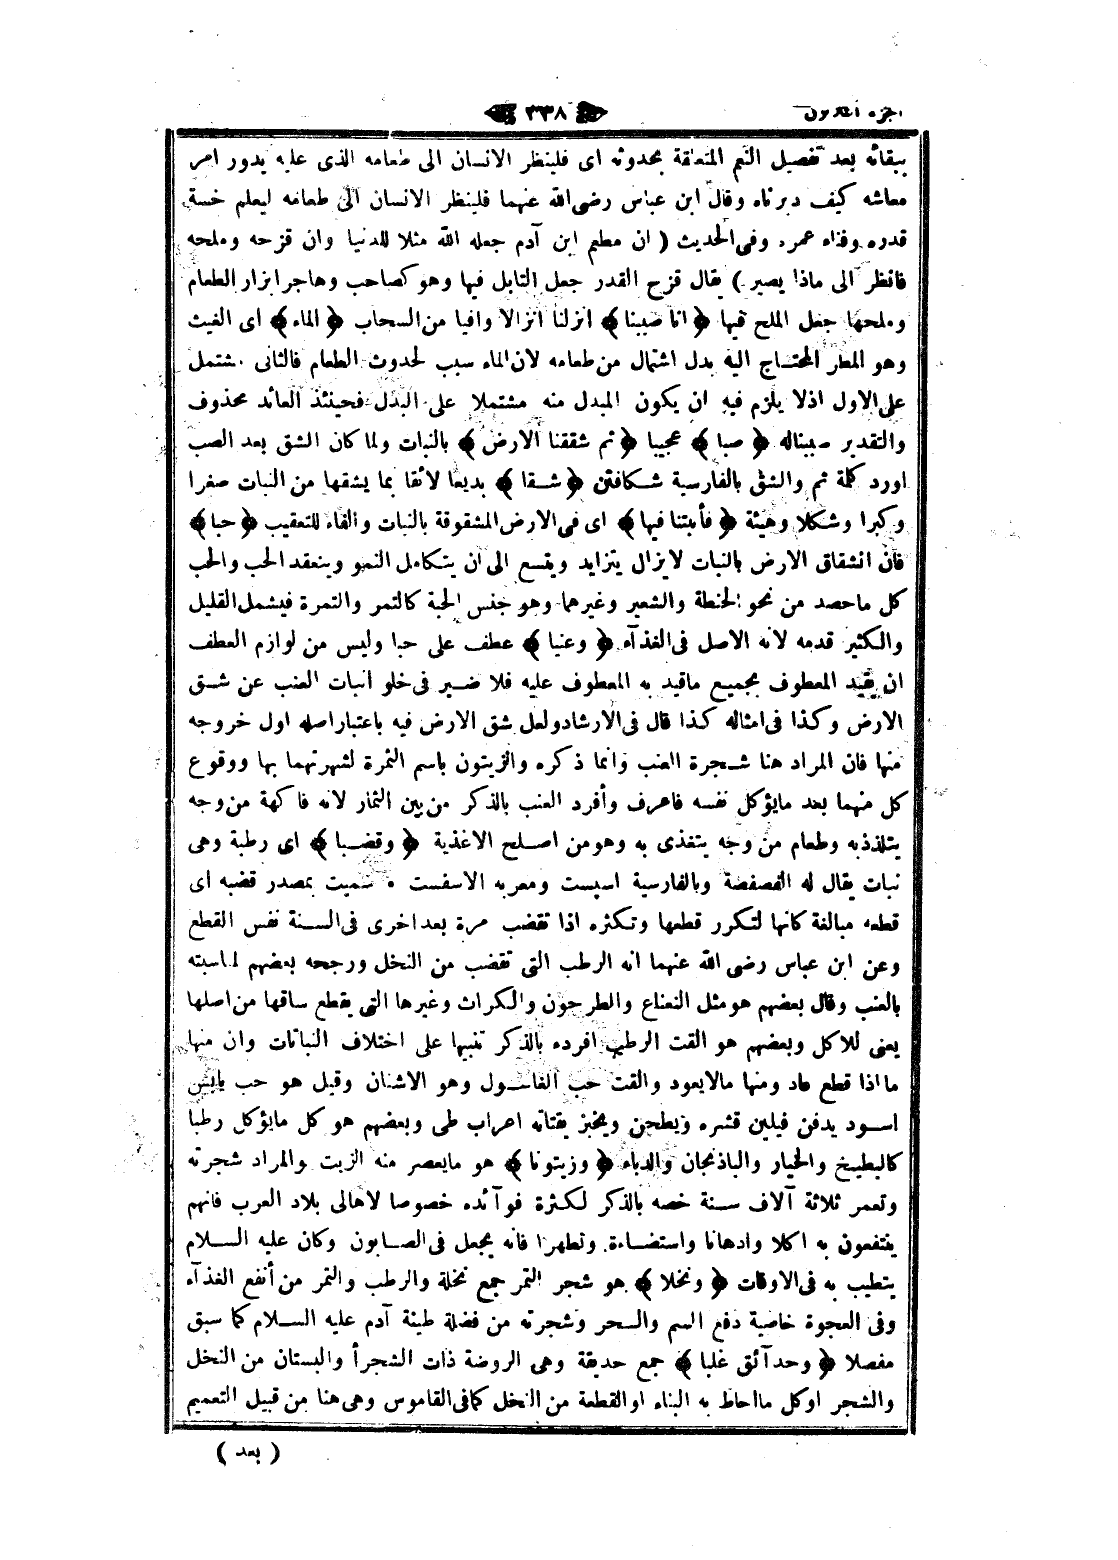 الجزء الثلاثون ٣٣٨
ببقائه بعد تفصيل النعم المتعلقة بحدوثه اى فلينظر الانسان الى طعامه الذى عليه يدور امر
معاشه كيف دبرناه وقال ابن عباس رضى الله عنهما فلينظر الانسان الى طعامه ليعلم خسة
قدره وفناء عمره وفى الحديث ( ان مطعم ابن آدم جعله الله مثلا للدنيا وان قزحه وملحه
فانظر الى ماذا يصير ) يقال قزح القدر جعل التابل فيها وهو كصاحب وهاجر ابزار الطعام
وملحها جعل الملح فيها ﴿ انا صببنا ﴾ انزلنا انزالا وافيا من السحاب ﴿ الماء ﴾ اى الغيث
وهو المطر المحتاج اليه بدل اشتمال من طعامه لان الماء سبب لحدوث الطعام فالثانى مشتمل
على الاول اذلا يلزم فيه ان يكون المبدل منه مشتملا على البدل فحينئذ العائد محذوف
والتقدير صببناله ﴿ صبا ﴾ عجيبا ﴿ ثم شققنا الارض ﴾ بالنبات ولما كان الشق بعد الصب
اورد كلمة ثم والشق بالفارسية شكافتن ﴿ شقا ﴾ بديعا لائقا بما يشقها من النبات صغرا
وكبرا وشكلا وهيئة ﴿ فأنبتنا فيها ﴾ اى فى الارض المشقوقة بالنبات والفاء للتعقيب ﴿ حبا ﴾
فان انشقاق الارض بالنبات لايزال يتزايد ويتسع الى ان يتكامل النمو وينعقد الحب والحب
كل ماحصد من نحو الحنطة والشعير وغيرهما وهو جنس الحبة كالتمر والتمرة فيشمل القليل
والكثير قدمه لانه الاصل فى الغذآء ﴿ وعنبا ﴾ عطف على حبا وليس من لوازم العطف
ان يقيد المعطوف بجميع ماقيد به المعطوف عليه فلا ضير فى خلو انبات العنب عن شق
الارض وكذا فى امثاله كذا قال فى الارشاد ولعل شق الارض فيه باعتبار اصله اول خروجه
منها فان المراد هنا شجرة العنب وانما ذكره والزيتون باسم الثمرة لشهرتهما بها ووقوع
كل منهما بعد مايؤكل نفسه فاعرف وأفرد العنب بالذكر من بين الثمار لانه فاكهة من وجه
يتلذذبه وطعام من وجه يتغذى به وهومن اصلح الاغذية ﴿ وقضبا ﴾ اى رطبة وهى
نبات يقال له الفصفصة وبالفارسية اسپست ومعربه الاسفست * سميت بمصدر قضبه اى
قطعه مبالغة كانها لتكرر قطعها وتكثره اذا تقضب مرة بعد اخرى فى السنة نفس القطع
وعن ابن عباس رضى الله عنهما انه الرطب التى تقضب من النخل ورجحه بعضهم لمناسبته
بالعنب وقال بعضهم هو مثل النعناع والطرحون والكراث وغيرها التى يقطع ساقها من اصلها
يعنى للاكل وبعضهم هو القت الرطب افرده بالذكر تنبيها على اختلاف النباتات وان منها
مااذا قطع عاد ومنها مالايعود والقت حب الغاسول وهو الاشنان وقيل هو حب يابس
اسود يدفن فيلين قشره ويطحن ويخبز يقتاته اعراب طى وبعضهم هو كل مايؤكل رطبا
كالبطيخ والخيار والباذنجان والدباء ﴿ وزيتونا ﴾ هو مايعصر منه الزيت والمراد شجرته
وتعمر ثلاثة آلاف سنة خصه بالذكر لكثرة فوآئده خصوصا لاهالى بلاد العرب فانهم
ينتفعون به اكلا وادهانا واستضاءة وتطهرا فانه يجعل فى الصابون وكان عليه السلام
يتطيب به فى الاوقات ﴿ ونخلا ﴾ هو شجر التمر جمع نخلة والرطب والتمر من أنفع الغذآء
وفى العجوة خاصية دفع السم والسحر وشجرته من فضلة طينة آدم عليه السلام كما سبق
مفصلا ﴿ وحدآئق غلبا ﴾ جمع حديقة وهى الروضة ذات الشجرأ والبستان من النخل
والشجر اوكل مااحاط به البناء او القطعة من النخل كمافى القاموس وهى هنا من قبيل التعميم
( بعد )